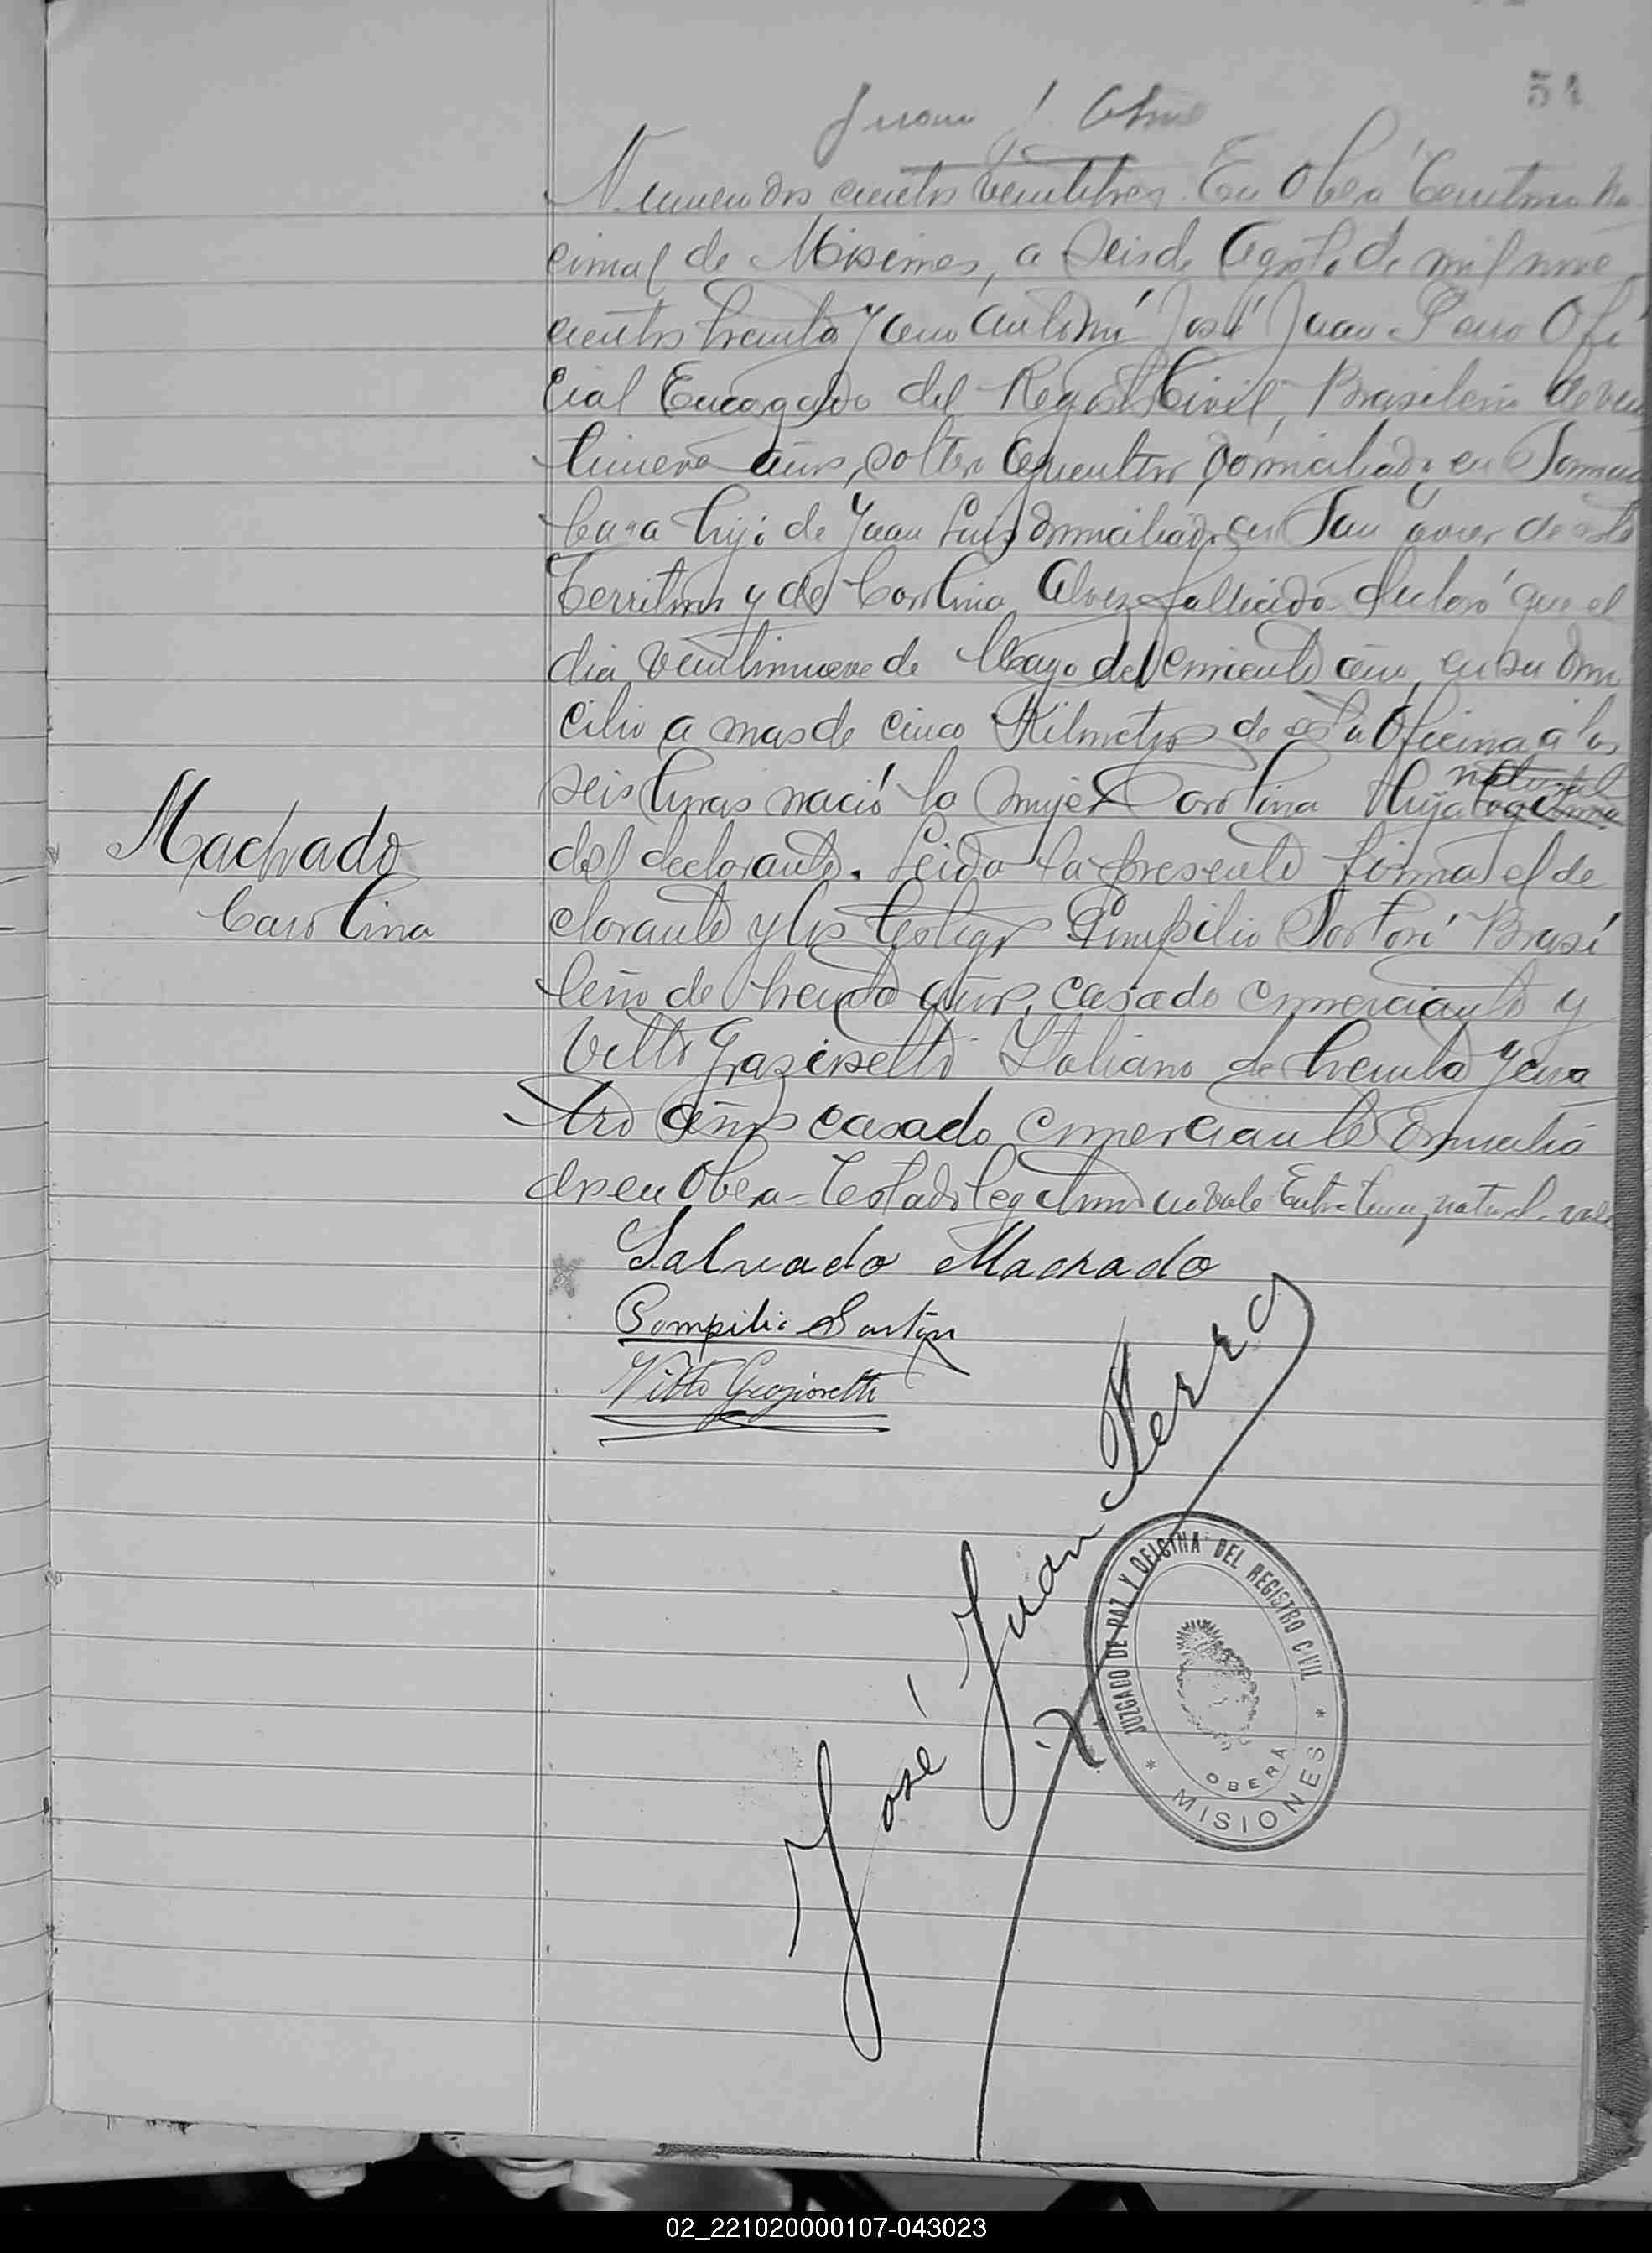 54
Juan J.
Numero dos cientos veintitres. En Oberá Territorio Na
cional de Misiones, a Seis de Agosto de mil nove
cientos treinta y ante mi José Juan Perro Ofi
cial Encargado del Registro Civil, Brasileño de vein
tinueve años, soltero Agricultor, domiciliado en
hijo de Juan Luis domiciliado en San Javier de este
Territorio y de Carolina Alvez fallecida declaró que el
dia veintinueve de Mayo del corriente año, en su domi
cilio a mas de cinco Kilometros de esta Oficina a las
natural
seis horas nació la mujer Carolina Hija legitima
Machado
del declarante. Leida la presente firma el de
Carolina
clarante y los testigos Pompilio Sartori Brasi
leño de treinta años, casado comerciante y
Vitto Graziosetti Italiano de treinta y cua
tro años casado comerciante domicilia
dos en Obera - Testado legitima no vale Entre linea, natural - vale
Salvado Machado
Pompilio Sartori
Vitto Graziosetti
José Juan Perro
JUZGADO DE PAZ Y OFICINA DEL REGISTRO CIVIL
OBERÁ
* MISIONES *
02_221020000107-043023